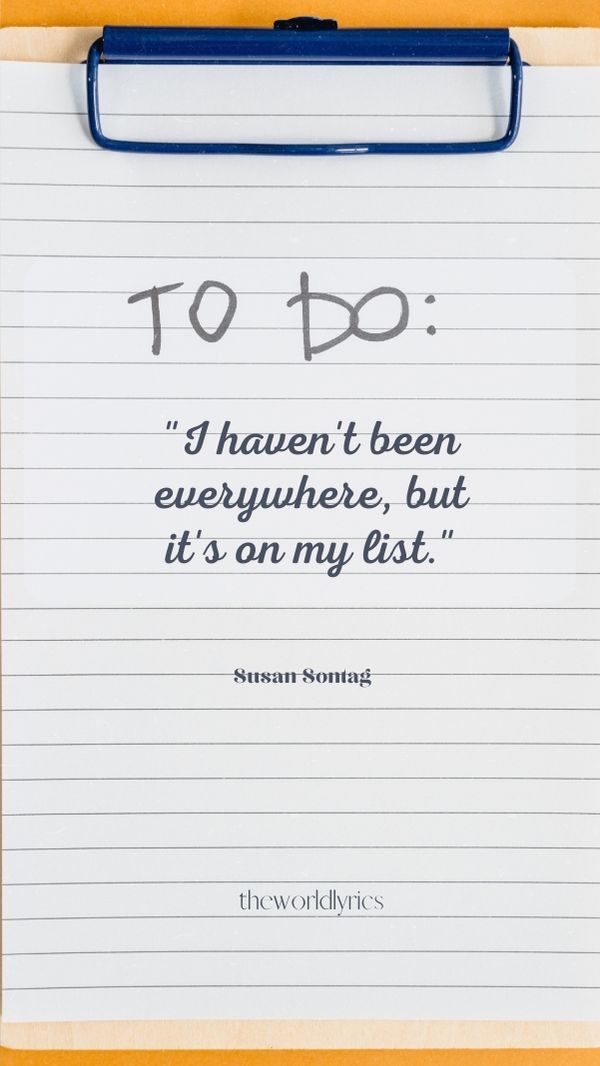 TO DO:
"I haven't been
everywhere, but
it's on my list."
Susan Sontag
theworldlyrics